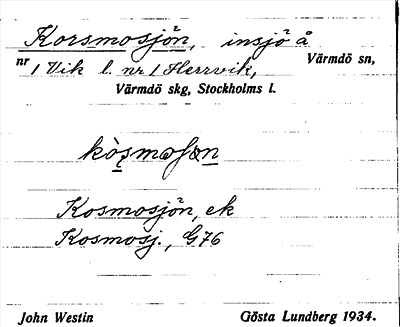 Korsmosjön, insjö å
nr 1 Vik l. nr 1 Herrvik, Värmdö sn,
Värmdö skg, Stockholms l.
Kosmosjön, ek
Kosmosj., G76
John Westin Gösta Lundberg 1934.